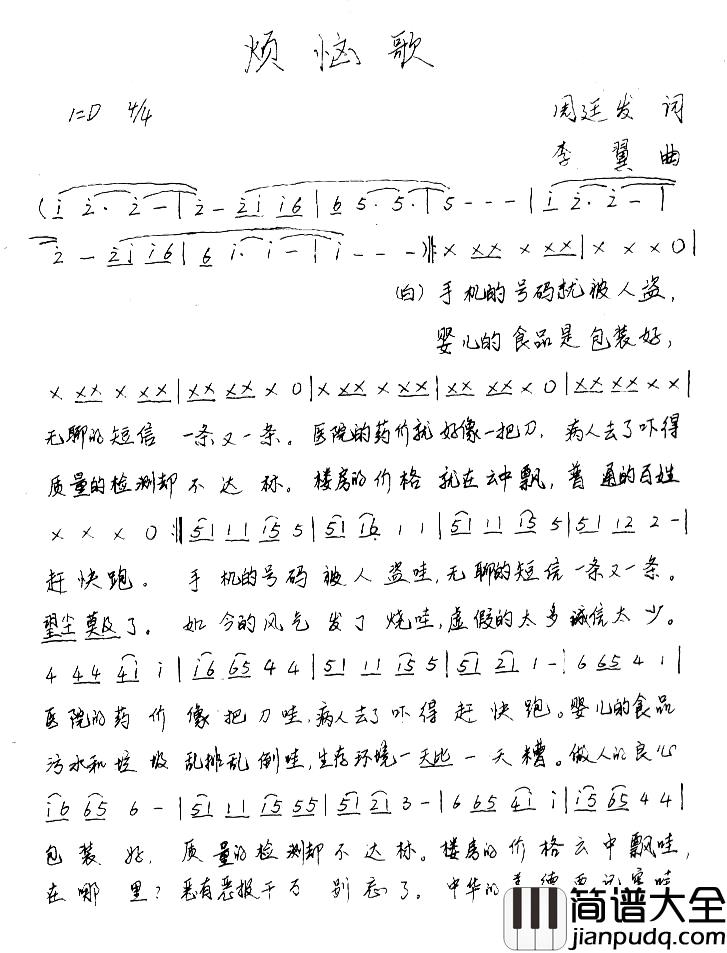 烦恼歌
1=D 4/4
周廷发 词
李 翼 曲
(i 2· 2 - | 2 - 2i i6 | 6 5· 5· | 5 - - - | i 2· 2 - |
2 - 2i i6 | 6 i· i - | i - - - )‖: x xx x xx | x x x 0 |
(白) 手机的号码就被人盗,
婴儿的食品是包装好,
x xx x xx | xx xx x 0 | x xx x xx | xx xx x 0 | xx xx x x |
无聊的短信 一条又一条。医院的药价就好像一把刀, 病人去了吓得
质量的检测却不达标。楼房的价格就在云中飘, 普通的百姓
x x x 0 :‖ 51 11 i5 5 | 51 i6 1 1 | 51 11 i5 5 | 51 12 2 - |
赶快跑。 手机的号码被人盗哇,无聊的短信一条又一条。
望尘莫及了。 如今的风气发了烧哇,虚假的太多诚信太少。
4 44 4i i | i6 65 4 4 | 51 11 i5 5 | 51 21 1 - | 6 65 4 1 |
医院的药价像把刀哇,病人去了吓得赶快跑。婴儿的食品
污水和垃圾乱排乱倒哇,生存环境一天比一天糟。做人的良心
i6 65 6 - | 51 11 i5 55 | 51 21 3 - | 6 65 4i i | i5 65 4 4 |
包装好, 质量的检测却不达标。楼房的价格云中飘哇,
在哪里?恶有恶报千万别忘了。中华的美德
简谱大全
jianpudq.com